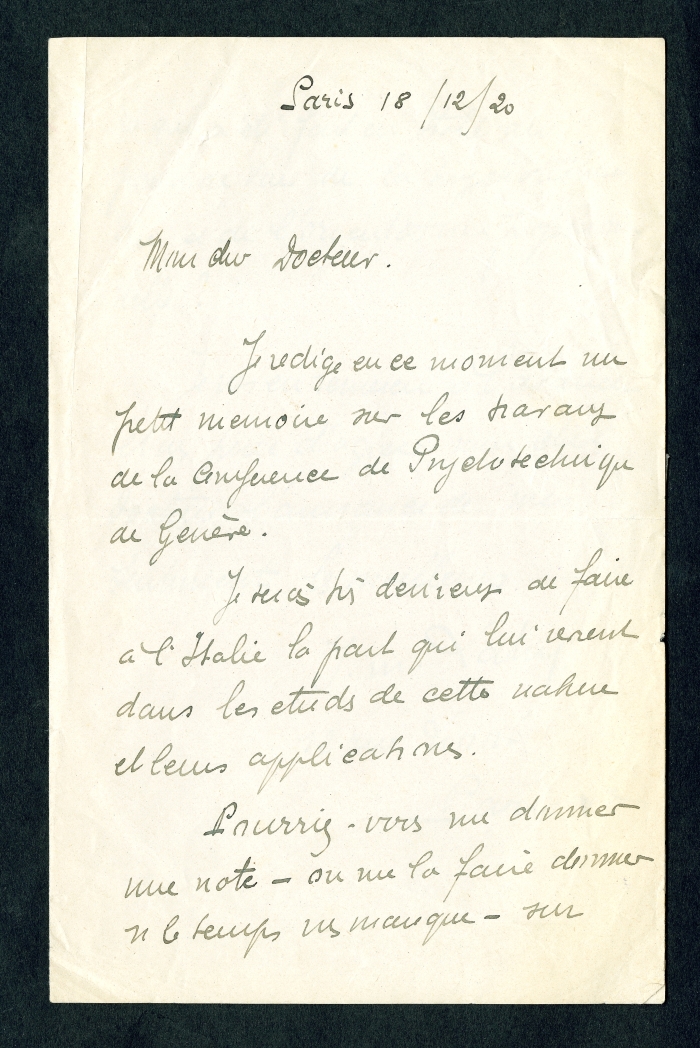 Paris 18/12/20
Mon cher Docteur.
Je rédige en ce moment un
petit memoire sur les travaux
de la Conference de Psychotechnique
de Genève.
Je serais très desireux de faire
à l'Italie la part qui lui revient
dans les etudes de cette nature
et leurs applications.
Pourriez-vous me donner
une note - ou me la faire donner
si le temps vs manque - sur